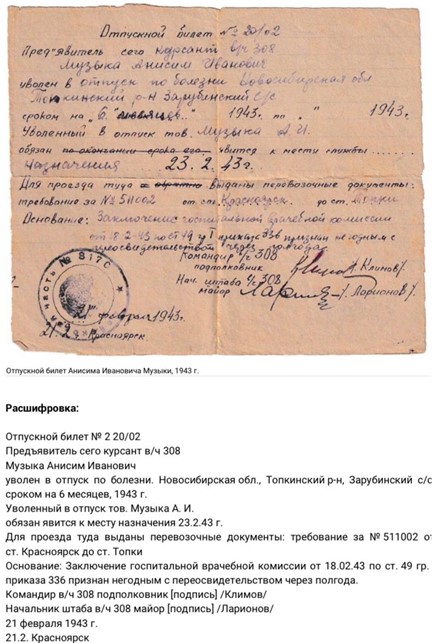 Отпускной билет № 2 20/02
Пред'явитель сего курсант в/ч 308
Музыка Анисим Иванович
уволен в отпуск по болезни Новосибирская обл
Топкинский р-н Зарубинский С/с
сроком на „6" месяцев 1943 г. по „ " 1943 г.
Уволенный в отпуск тов. Музыка А. И.
обязан по окончании срока его явится к месту службы
назначения 23.2.43 г.
Для проезда туда и обратно выданы перевозочные документы:
требование за № 511002 от ст. Красноярск до ст. Топки
Основание: Заключение госпитальной врачебной комиссии
от 18.2.43 по ст 49 гр I приказ 336 признан негодным с
переосвидетельством через полгода.
Командир в/ч 308
подполковник /Климов/
Нач. штаба в/ч 308
майор /Ларионов/
часть № 817С
21 февраля 1943 г.
21.2. Красноярск
Отпускной билет Анисима Ивановича Музыки, 1943 г.
Расшифровка:
Отпускной билет № 2 20/02
Предъявитель сего курсант в/ч 308
Музыка Анисим Иванович
уволен в отпуск по болезни. Новосибирская обл., Топкинский р-н, Зарубинский с/с
сроком на 6 месяцев, 1943 г.
Уволенный в отпуск тов. Музыка А. И.
обязан явится к месту назначения 23.2.43 г.
Для проезда туда выданы перевозочные документы: требование за № 511002 от
ст. Красноярск до ст. Топки
Основание: Заключение госпитальной врачебной комиссии от 18.02.43 по ст. 49 гр.
приказа 336 признан негодным с переосвидетельством через полгода.
Командир в/ч 308 подполковник [подпись] /Климов/
Начальник штаба в/ч 308 майор [подпись] /Ларионов/
21 февраля 1943 г.
21.2. Красноярск